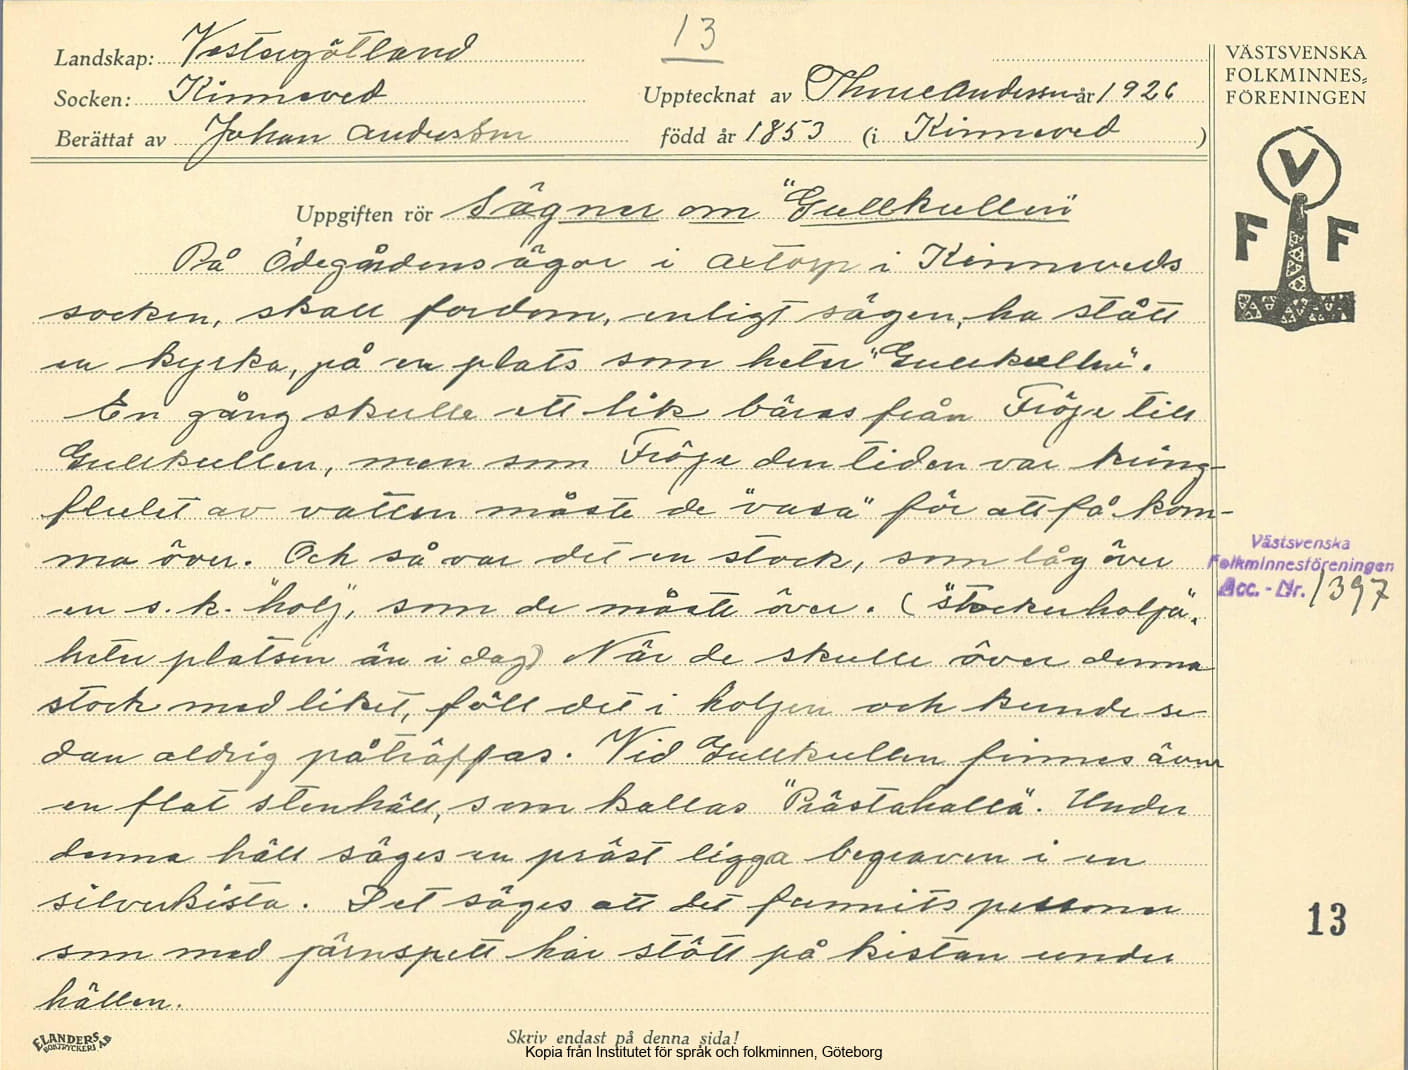 13
Landskap: Västergötland
Socken: Kinneved
Upptecknat av Thure Andersson år 1926
Berättat av Johan Andersson
född år 1853 (i Kinneved)
VÄSTSVENSKA
FOLKMINNES=
FÖRENINGEN
V
F F
Uppgiften rör Sägner om "Gullkullen"
På Ödegårdens ägor i Axtorp i Kinneveds
socken, skall fordom, enligt sägen, ha stått
en kyrka, på en plats som heter "Gullkullen".
En gång skulle ett lik bäras från Fröje till
Gullkullen, men som Fröje den tiden var kring-
flutet av vatten måste de "vasa" för att få kom-
ma över. Och så var det en stock, som låg över
en s.k. "holj", som de måste över. ("Stockerholja",
heter platsen än i dag) När de skulle över denna
stock med liket, föll det i holjen och kunde se
dan aldrig påträffas. Vid Gullkullen finnes även
en flat stenhäll, som kallas "Prästahalla". Under
denna häll säges en präst ligga begraven i en
silverkista. Det säges att det funnits personer
som med järnspett har stött på kistan under
hällen.
Västsvenska
Folkminnesföreningen
Acc. - Nr. 1397
13
ELANDERS
BOKTRYCKERI AB
Skriv endast på denna sida!
Kopia från Institutet för språk och folkminnen, Göteborg